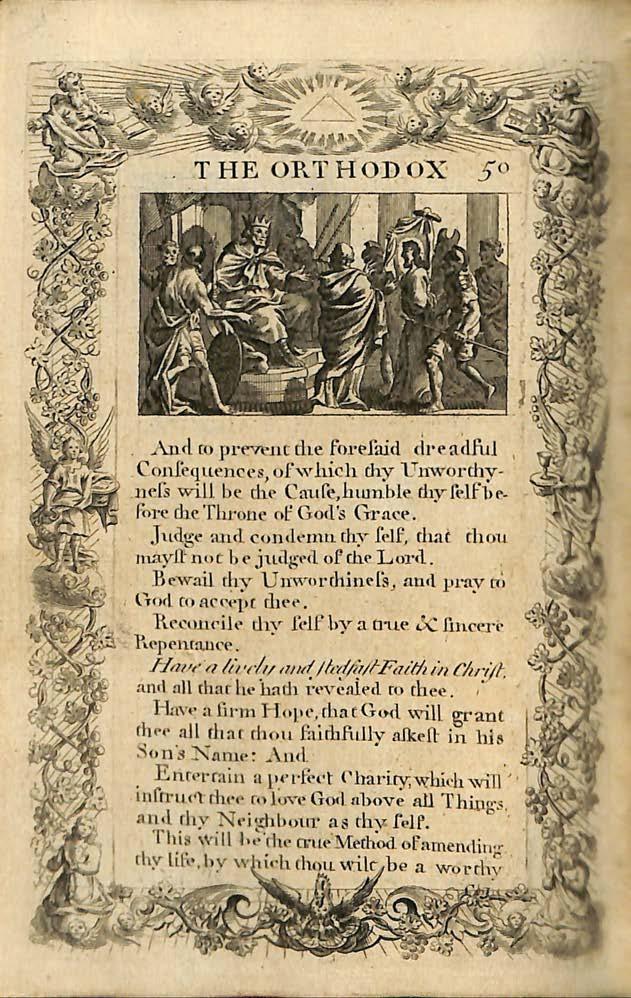 THE ORTHODOX 50
And to prevent the foreſaid dreadful
Conſequences, of which thy Unworthy-
neſs will be the Cauſe, humble thy ſelf be-
fore the Throne of God's Grace.
Judge and condemn thy ſelf, that thou
mayſt not be judged of the Lord.
Bewail thy Unworthineſs, and pray to
God to accept thee.
Reconcile thy ſelf by a true & ſincere
Repentance.
Have a lively and ſtedfaſt Faith in Chriſt,
and all that he hath revealed to thee.
Have a firm Hope, that God will grant
thee all that thou faithfully aſkeſt in his
Son's Name: And
Entertain a perfect Charity, which will
inſtruct thee to love God above all Things,
and thy Neighbour as thy ſelf.
This will be the true Method of amending
thy life, by which thou wilt be a worthy